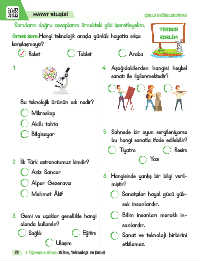 HAYAT BİLGİSİ
Soruların doğru cevaplarını örnekteki gibi işaretleyelim.
Örnek Soru: Hangi teknolojik araçla günlük hayatta
konuşamayız?
Roket
Tablet
Araba
Bu teknolojik ürünün adı nedir?
Mikroskop
Akıllı tahta
Bilgisayar
2. İlk Türk astronotumuz kimdir?
Aziz Sancar
Alper Gezeravcı
Mehmet Âkif
3. Gemi ve uçaklar genellikle hangi
alanda kullanılır?
Sağlık
Eğitim
Ulaşım
4. Aşağıdakilerden hangisi heykel
sanatı ile ilgilenmektedir?
5. Sahnede bir oyun sergileniyorsa
bu hangi sanatla ifade edilebilir?
Tiyatro
Resim
Yazı
6. Hangisinde yanlış bir bilgi veril-
miştir?
Sanatçılar hayal gücü yük-
sek insanlardır.
Bilim insanları meraklı in-
sanlardır.
Sanat ve teknoloji birbirini
etkilemez.